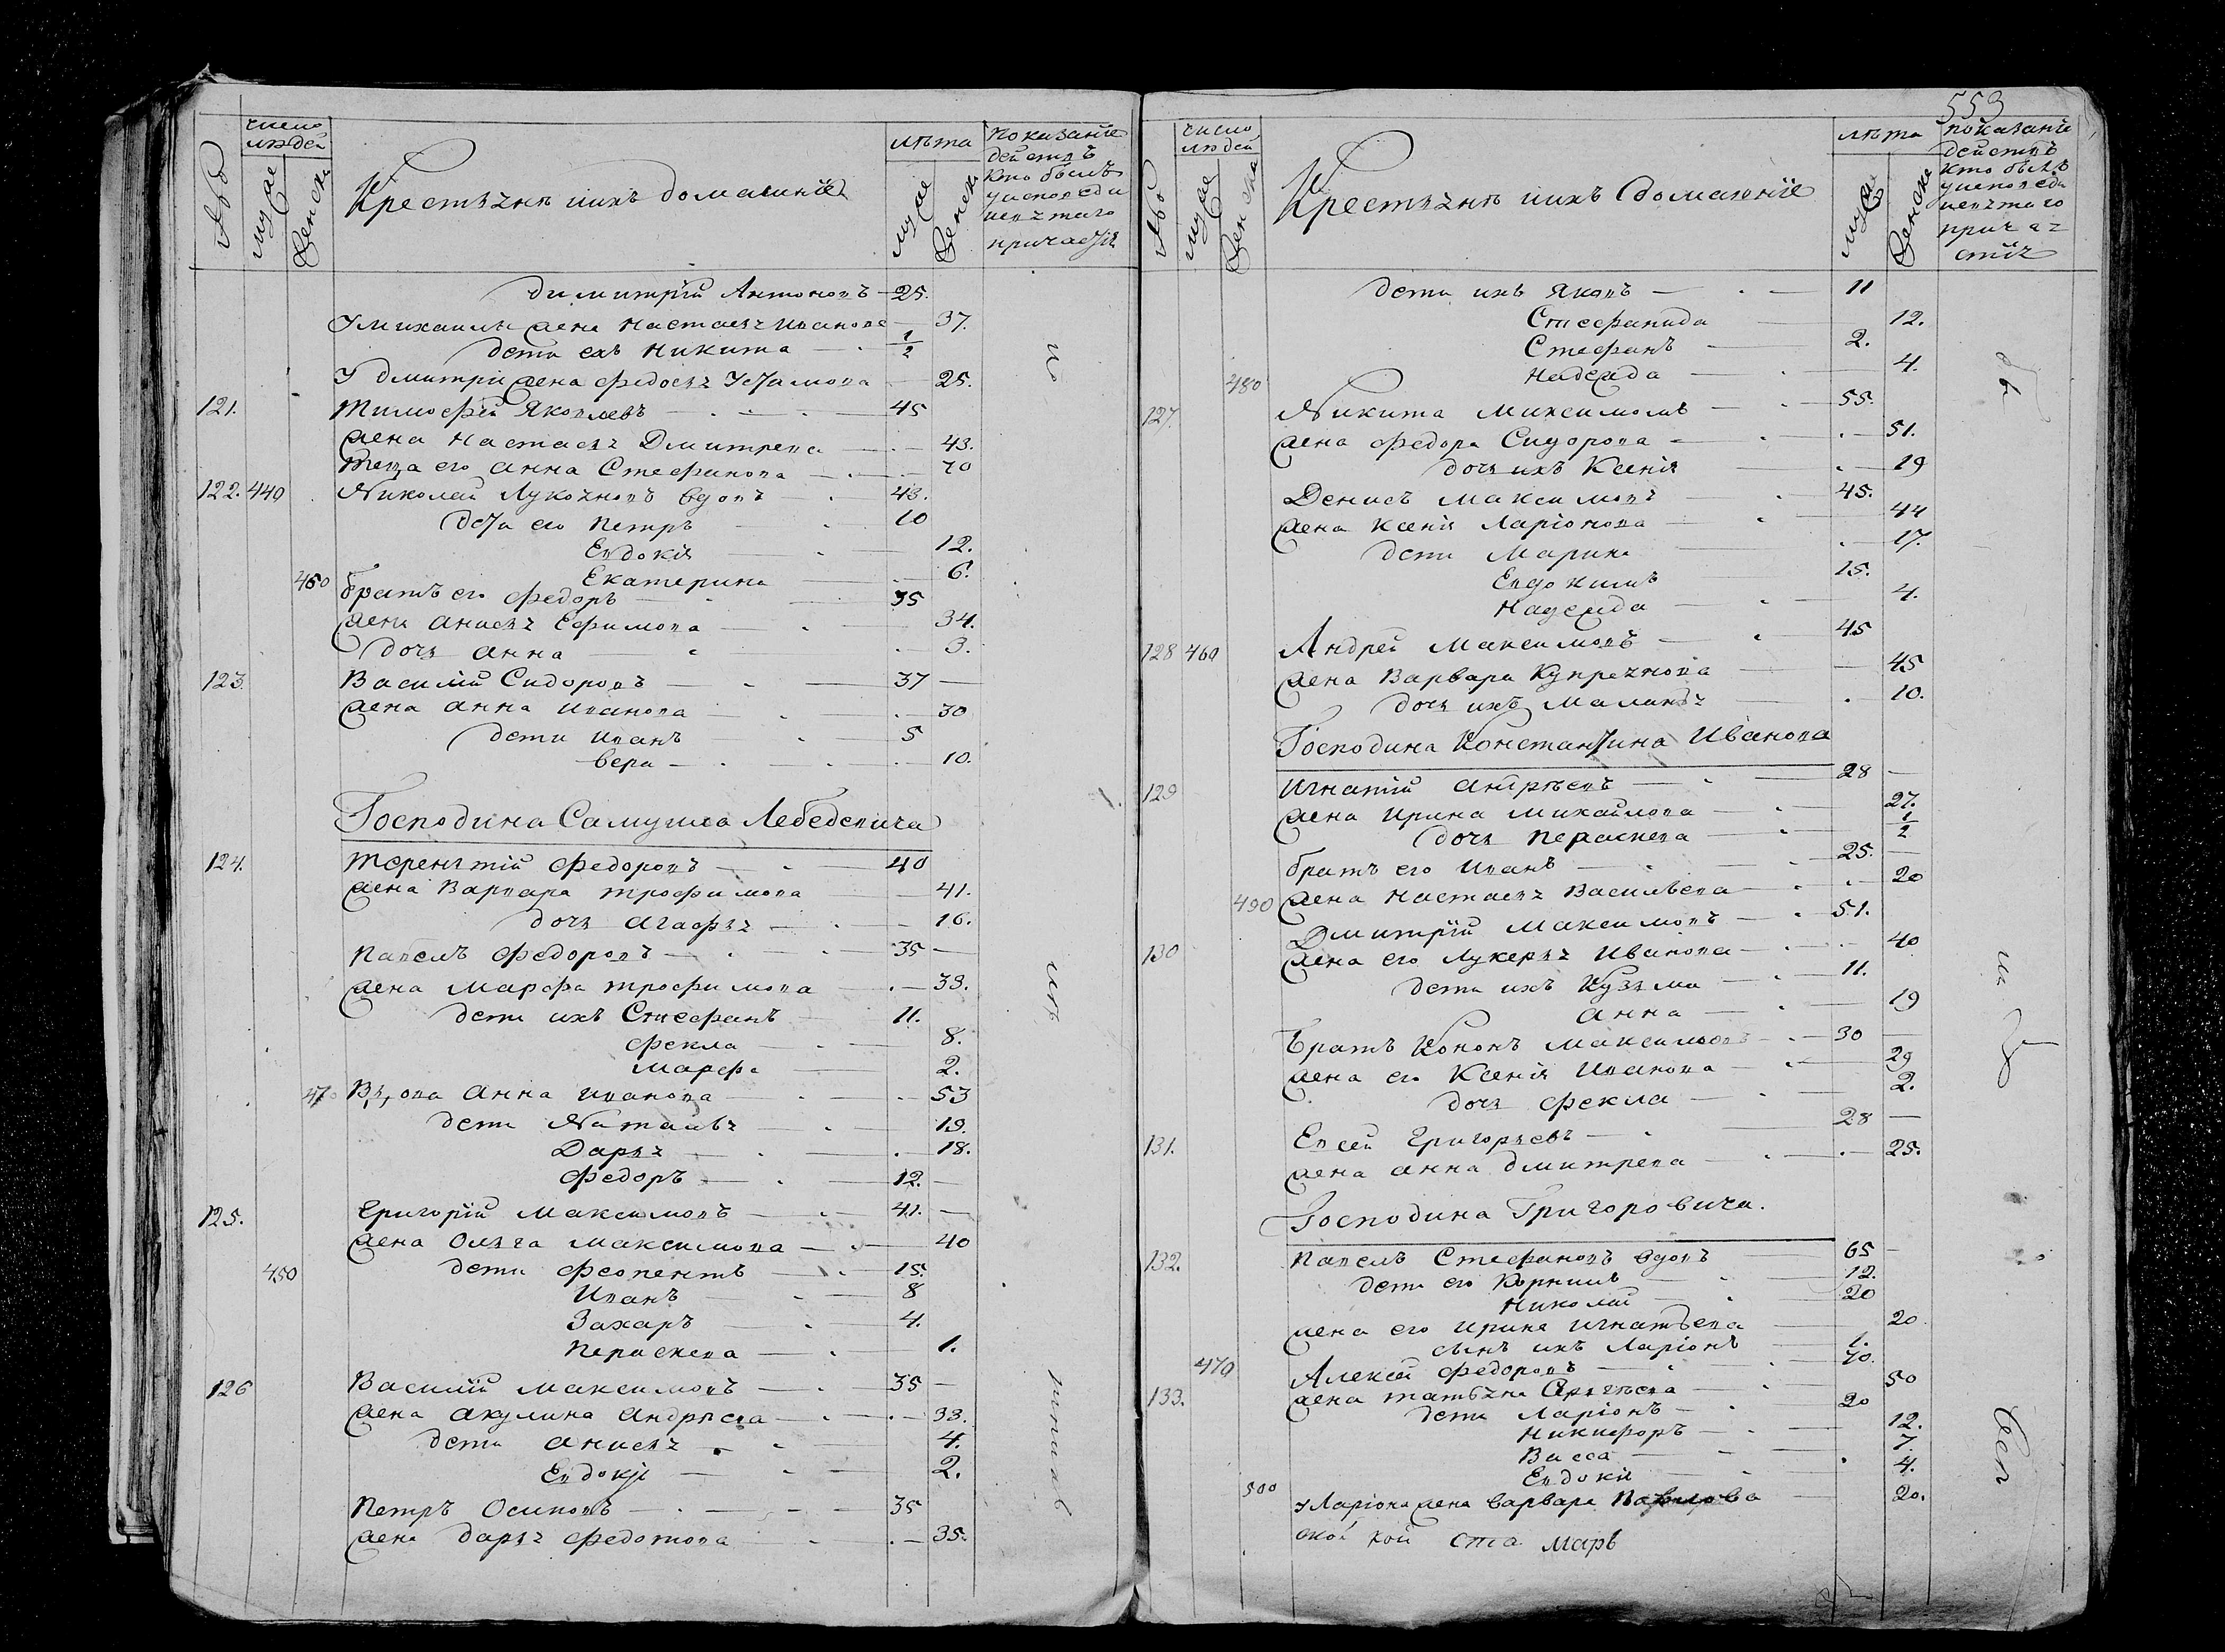 число людей
мужес
женска
Крестяне ихъ домашніе
лѣта
мужес
женска
показаніе
действъ
кто былъ
у исповеди
и святаго
причастія
Димитрій Антоновъ 25.
У михаилы жена Настася Иванова 37.
дети ехъ Никита 1/2
У дмитри жена Федося Устамова 25.
121. Тимофей Яковлевъ 45
жена Настася Дмитрева 43.
теща его Анна Стефанова 70
122. 440 Николай Лукочновъ вдовъ 43.
дети его Петръ 10
Евдокія 12.
Екатерина 6.
460 братъ его Федоръ 35
жена Анися Ефимова 34.
дочъ Анна 3.
123 Василій Сидоровъ 37
жена Анна Иванова 30
дети Иванъ 5
Вера 10.
Господина Самуила Лебедевича
124. Терентій Федоровъ 40
жена Варвара Трофимова 41.
дочъ Агафя 16.
Павелъ Федоровъ 35
жена Марфа Трофимова 33.
дети ихъ Стефанъ 11.
Фекла 8.
Марфа 2.
470 Вдова Анна Иванова 53
дети Наталья 19.
Даря 18.
Федоръ 12.
125. Григорій Максимовъ 41.
жена Олга Максимова 40
450 дети Феопентъ 15.
Иванъ 8
Захаръ 4.
Пераскева 1.
126 Василій Максимовъ 35
жена Акулина Андрѣева 33.
дети Анися 4.
Евдокія 2.
Петръ Осиповъ 35
жена Даря Федотова 35.
553
число людей
мужес
женска
Крестяне ихъ домашніе
лѣта
мужес
женска
показание
действъ
кто былъ
у исповеди
и святаго
прича
стія
дети ихъ Яковъ 11
Стефанида 12.
Стефанъ 2.
480 Надежда 4.
127. Никита Максимовъ 55.
жена Федора Сидорова 51.
дочъ ихъ Ксенія 19
Денисъ Максимовъ 45.
жена Ксенія Ларіонова 44
дети Марина 17.
Евдокимъ 15.
Надежда 4.
128 460 Андрей Максимовъ 45
жена Варвара Купреянова 45
дочъ ихъ Маланя 10.
Господина Константина Иванова
129 Игнатій Андрѣевъ 28
жена Ирина Михайлова 27.
дочъ Пераскева 1/2
братъ его Иванъ 25.
490 жена Настася Василева 20
130 Дмитрій Максимовъ 51.
жена его Лукеря Иванова 40
дети ихъ Кузма 11.
Анна 19
Братъ Кононъ Максимовъ 30
жена его Ксенія Иванова 29
дочъ Фекла 2.
131. Евсей Григорьевъ 28
жена Анна Дмитрева 25.
Господина Григоровича.
132. Павелъ Стефановъ вдовъ 65
дети его Корнилъ 12.
Николай 20
жена его Ирина Игнатьева 20
сынъ ихъ Ларіонъ 1.
470 Алексей Федоровъ 70.
133. жена Татьяна 50
дети Ларіонъ 20
Никифоръ 12.
Васса 7
Евдокія 4.
500 У Ларіона жена Варвара Павлова 20.
ской кой ста марѣ